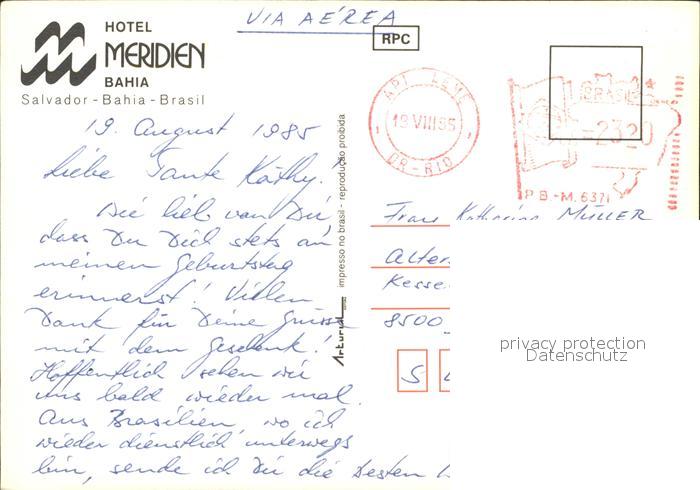 VIA AÉREA
RPC
HOTEL
MERIDIEN
BAHIA
Salvador - Bahia - Brasil
19. August 1985
Liebe Tante Käthy!
Wie lieb von Dir
dass Du Dich stets an
meinen Geburtstag
erinnerst! Vielen
Dank für Deine Grüsse
mit dem Geschenk!
Hoffentlich sehen wir
uns bald wieder mal.
Aus Brasilien, wo ich
wieder dienstlich unterwegs
bin, sende ich Dir die besten
impresso no brasil - reprodução proibida
Arturial
API LEME
19 VIII 85
DR-RIO
BRASIL
-2320
P.B.-M. 6371
Frau Katharina MÜLLER
Alten
Kesse
8500
S
privacy protection
Datenschutz